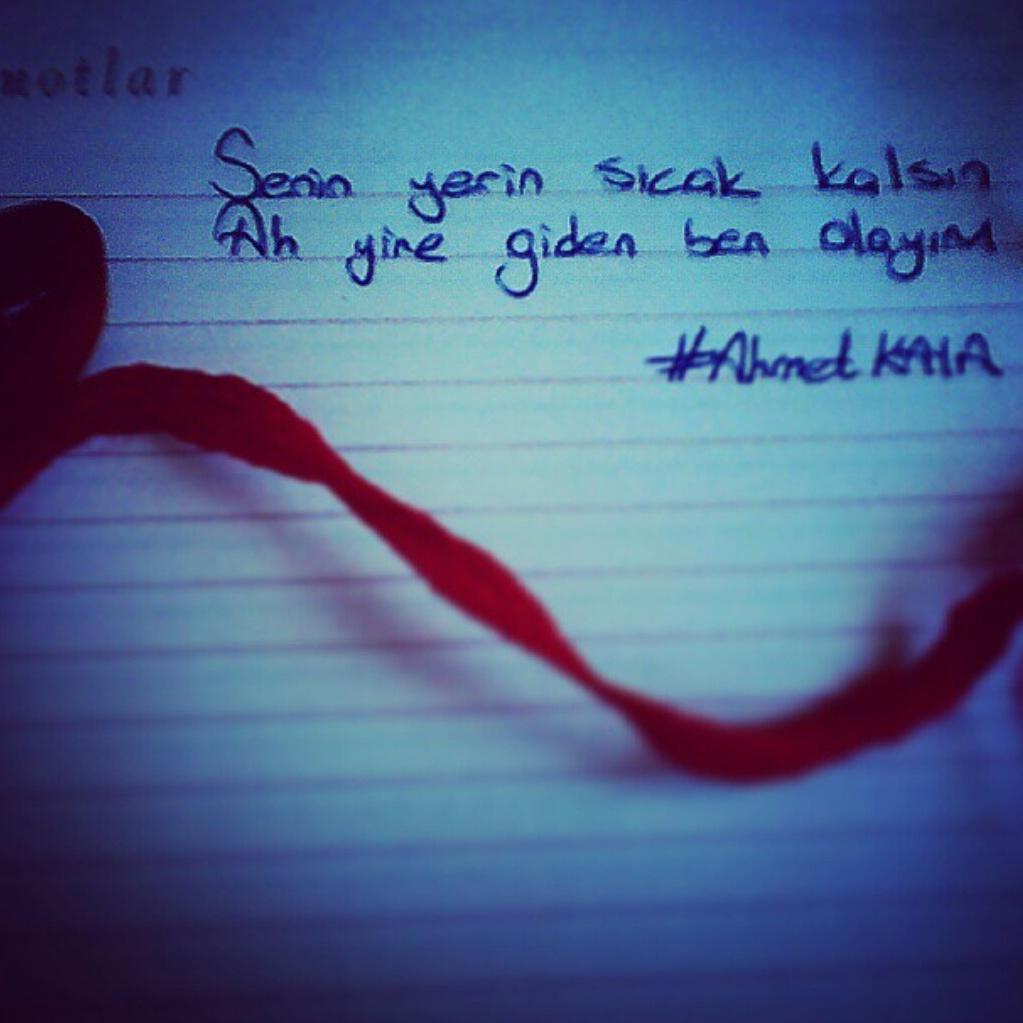 notlar
Senin yerin sıcak kalsın
Ah yine giden ben olayım
#Ahmet KAYA